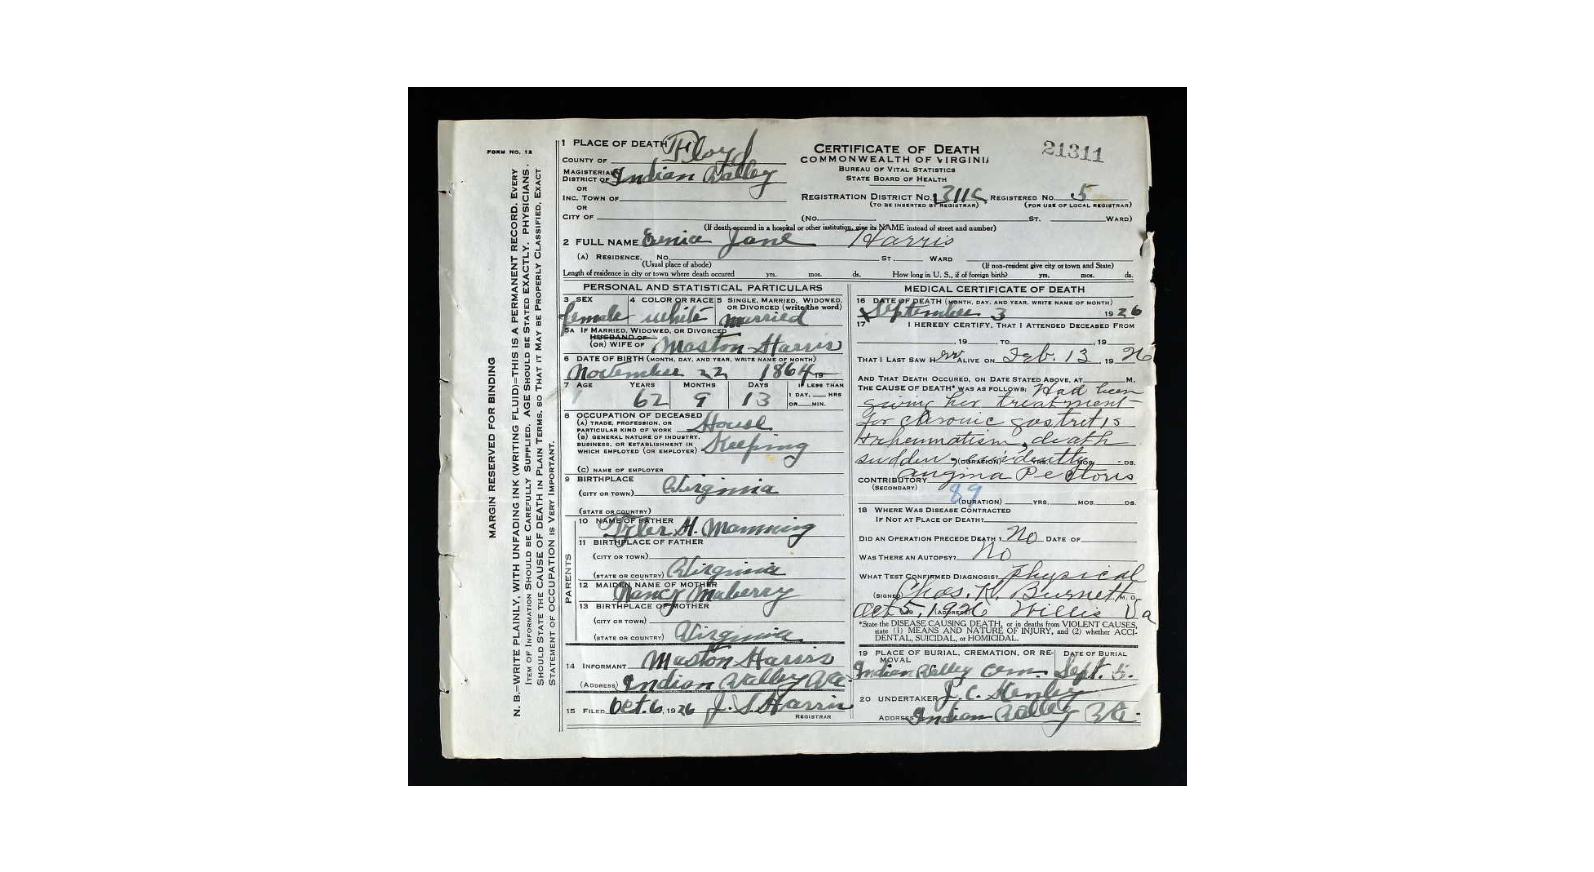 FORM NO. 12
MARGIN RESERVED FOR BINDING
N. B.—WRITE PLAINLY, WITH UNFADING INK (WRITING FLUID)—THIS IS A PERMANENT RECORD. EVERY
ITEM OF INFORMATION SHOULD BE CAREFULLY SUPPLIED. AGE SHOULD BE STATED EXACTLY. PHYSICIANS
SHOULD STATE THE CAUSE OF DEATH IN PLAIN TERMS, SO THAT IT MAY BE PROPERLY CLASSIFIED. EXACT
STATEMENT OF OCCUPATION IS VERY IMPORTANT.
1 PLACE OF DEATH
COUNTY OF Floyd
MAGISTERIAL
DISTRICT OF Indian Valley
OR
INC. TOWN OF
OR
CITY OF
CERTIFICATE OF DEATH
COMMONWEALTH OF VIRGINIA
BUREAU OF VITAL STATISTICS
STATE BOARD OF HEALTH
21311
REGISTRATION DISTRICT NO. 311C REGISTERED NO. 5
(TO BE INSERTED BY REGISTRAR) (FOR USE OF LOCAL REGISTRAR)
(NO. ST. WARD)
(If death occured in a hospital or other institution, give its NAME instead of street and number)
2 FULL NAME Eunice Jane Harris
(A) RESIDENCE. NO. ST. WARD
(Usual place of abode) (If non-resident give city or town and State)
Length of residence in city or town where death occured yrs. mos. ds. How long in U. S., if of foreign birth? yrs. mos. ds.
PERSONAL AND STATISTICAL PARTICULARS
3 SEX 4 COLOR OR RACE 5 SINGLE, MARRIED, WIDOWED,
OR DIVORCED (write the word)
female white married
5A IF MARRIED, WIDOWED, OR DIVORCED
HUSBAND OF
(OR) WIFE OF Maston Harris
6 DATE OF BIRTH (MONTH, DAY, AND YEAR, WRITE NAME OF MONTH)
November 22 1864 19
7 AGE YEARS MONTHS DAYS IF LESS THAN
62 9 13 1 DAY, HRS
OR MIN.
8 OCCUPATION OF DECEASED
(A) TRADE, PROFESSION, OR
PARTICULAR KIND OF WORK House
(B) GENERAL NATURE OF INDUSTRY,
BUSINESS, OR ESTABLISHMENT IN
WHICH EMPLOYED (OR EMPLOYER) Keeping
(C) NAME OF EMPLOYER
9 BIRTHPLACE
(CITY OR TOWN) Virginia
(STATE OR COUNTRY)
PARENTS
10 NAME OF FATHER
Tyler H. Manning
11 BIRTHPLACE OF FATHER
(CITY OR TOWN)
(STATE OR COUNTRY) Virginia
12 MAIDEN NAME OF MOTHER
Nancy Maberry
13 BIRTHPLACE OF MOTHER
(CITY OR TOWN)
(STATE OR COUNTRY) Virginia
14 INFORMANT Maston Harris
(ADDRESS) Indian Valley Va
15 FILED Oct. 6, 1926 J. S. Harris
REGISTRAR
MEDICAL CERTIFICATE OF DEATH
16 DATE OF DEATH (MONTH, DAY, AND YEAR, WRITE NAME OF MONTH)
September 3 1926
17 I HEREBY CERTIFY, THAT I ATTENDED DECEASED FROM
, 19 TO , 19
THAT I LAST SAW HER ALIVE ON Feb. 13 1926
AND THAT DEATH OCCURED, ON DATE STATED ABOVE, AT M.
THE CAUSE OF DEATH* WAS AS FOLLOWS: Had been
giving her treatment
for chronic gastritis
+ rheumatism, death
sudden, evidently
(DURATION) YRS. MOS. DS.
angina Pectoris
CONTRIBUTORY
(SECONDARY)
89
(DURATION) YRS. MOS. DS.
18 WHERE WAS DISEASE CONTRACTED
IF NOT AT PLACE OF DEATH?
DID AN OPERATION PRECEDE DEATH? No DATE OF
WAS THERE AN AUTOPSY? No
WHAT TEST CONFIRMED DIAGNOSIS? Physical
(SIGNED) Chas. H. Burnett M. D.
Oct 5, 1926 (ADDRESS) Willis Va
*State the DISEASE CAUSING DEATH, or in deaths from VIOLENT CAUSES,
state (1) MEANS AND NATURE OF INJURY, and (2) whether ACCI-
DENTAL, SUICIDAL, or HOMICIDAL.
19 PLACE OF BURIAL, CREMATION, OR RE- DATE OF BURIAL
MOVAL
Indian Valley Cem. Sept. 5.
20 UNDERTAKER J. C. Stenley
ADDRESS Indian Valley Va.